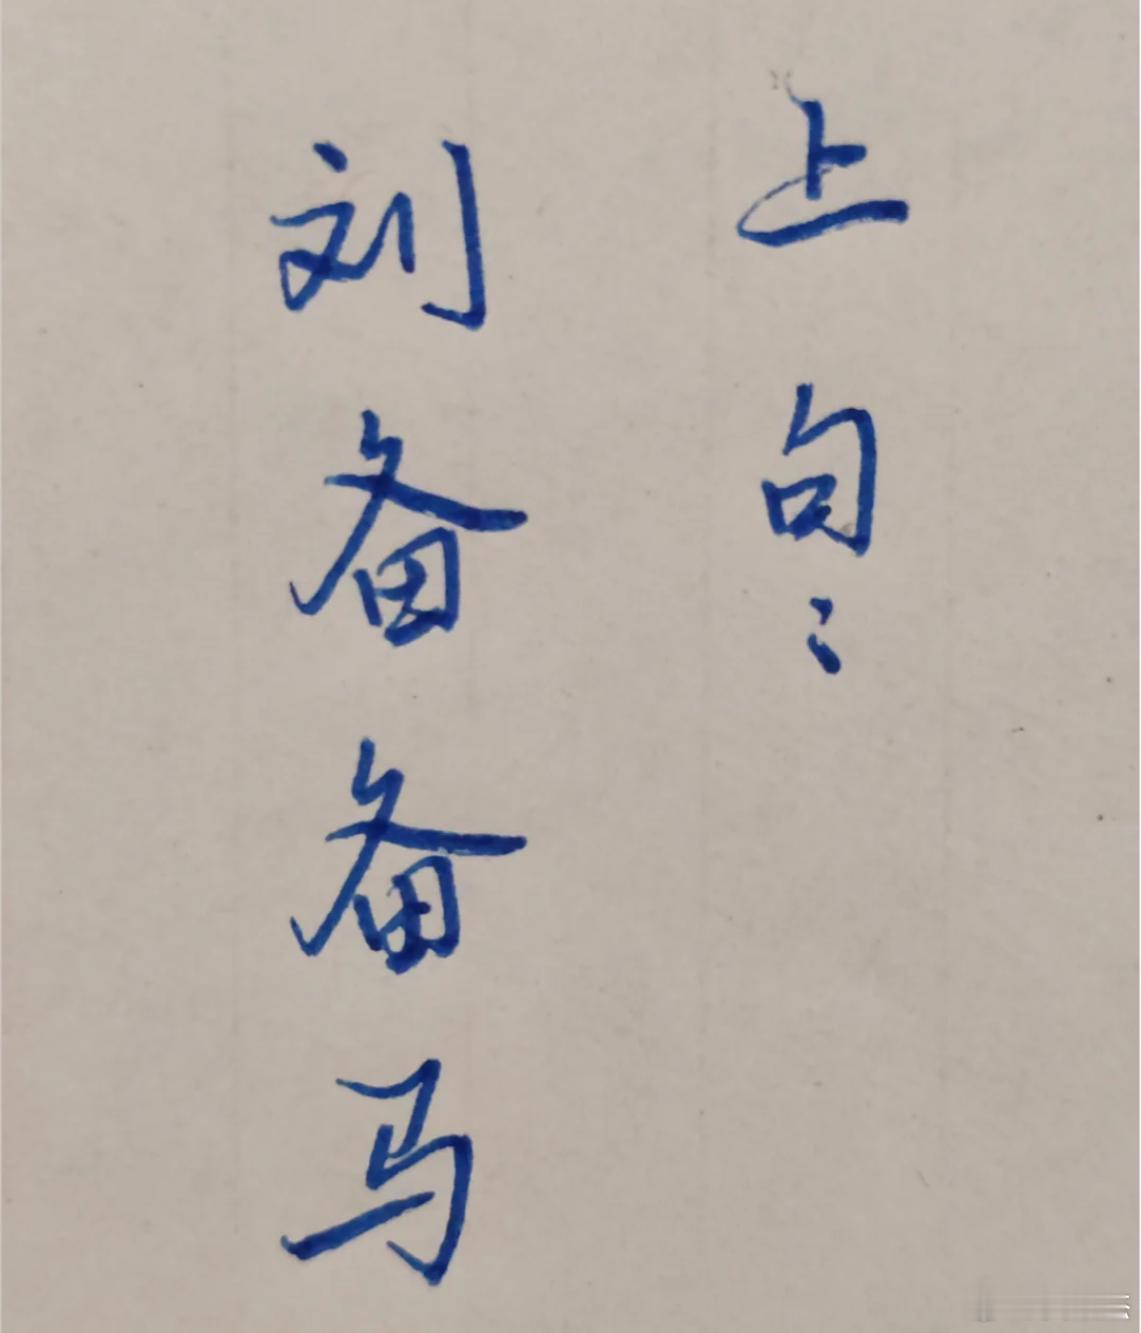 上句：
刘备备马